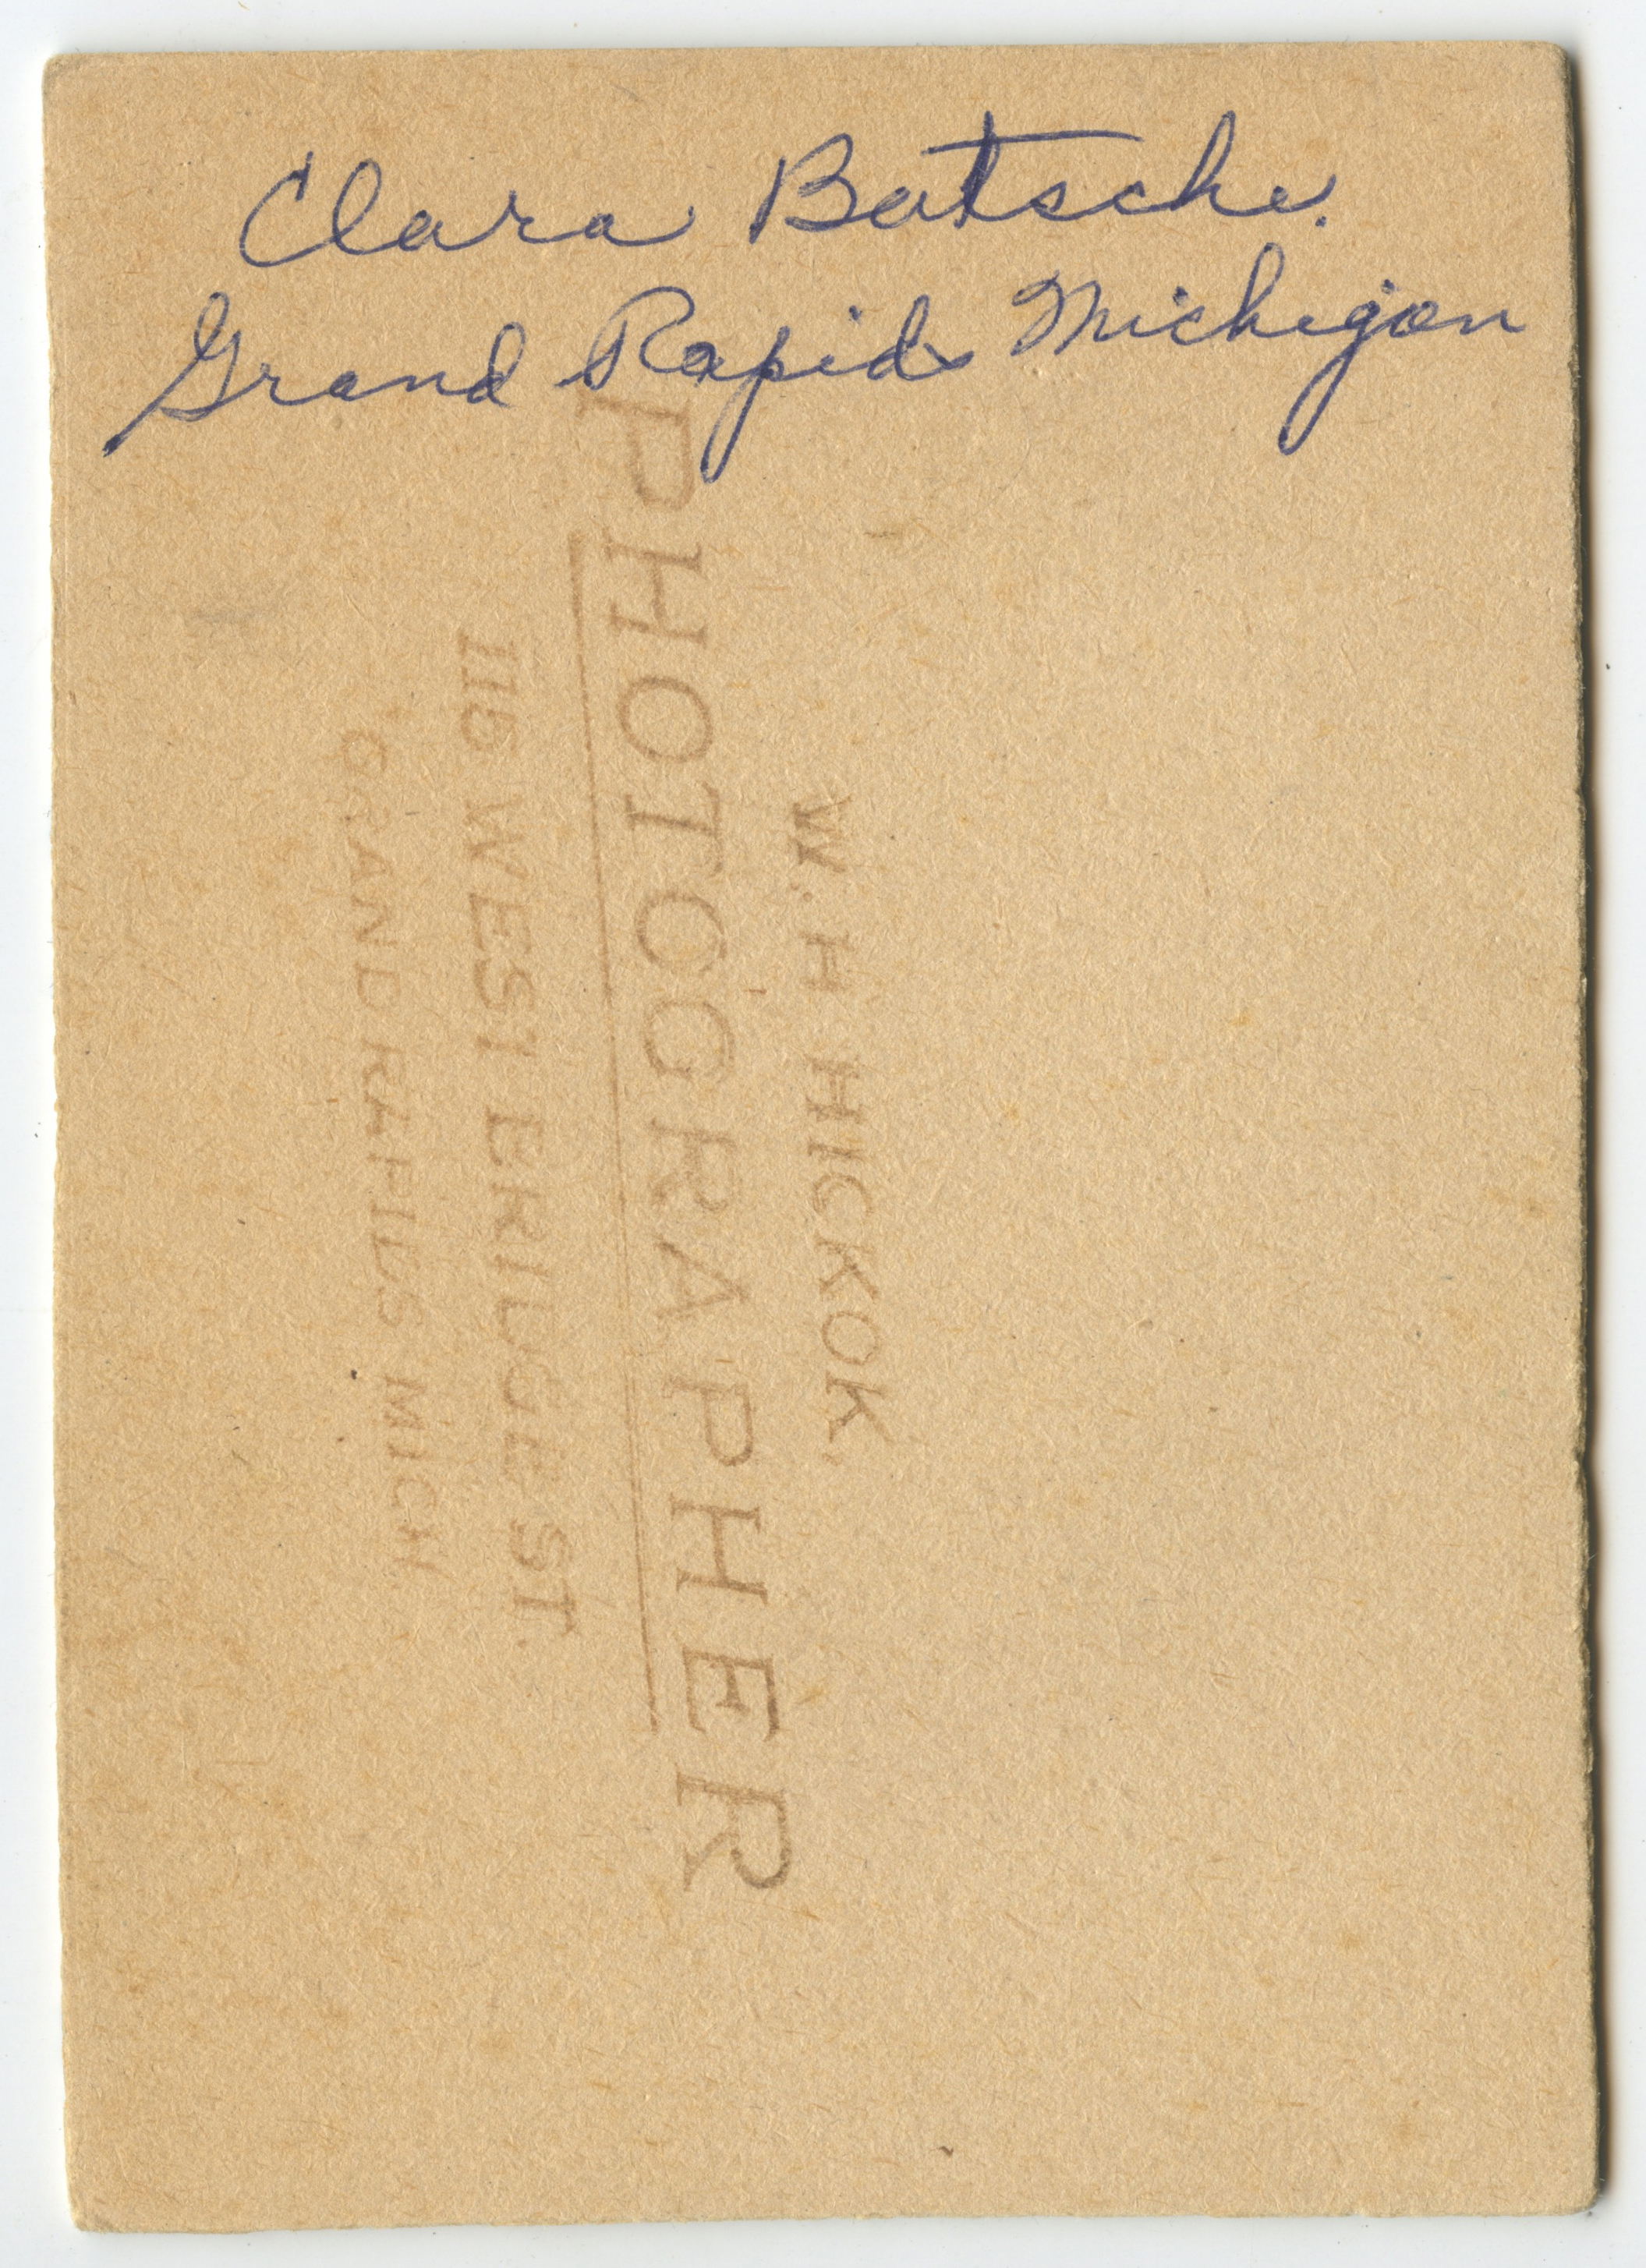 Clara Batsche.
Grand Rapids Michigan
W. H HICKOK,
PHOTOGRAPHER
WEST BRIDGE ST.
GRAND RAPIDS MICH